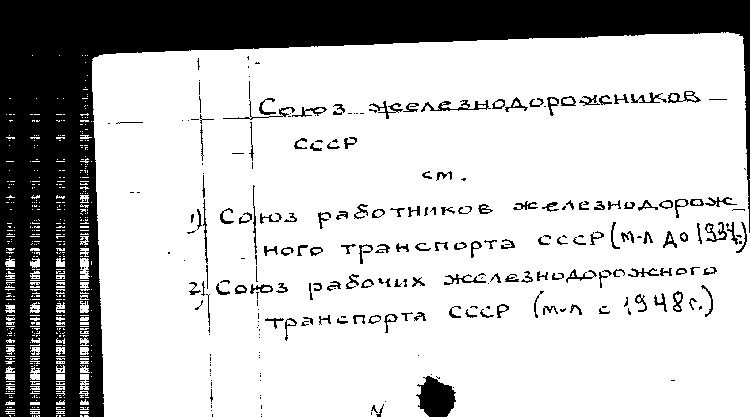 Союз железнодорожников
СССР
см.
1) Союз работников железнодорож-
ного транспорта СССР (м-л до 1934г.)
2) Союз рабочих железнодорожного
транспорта СССР (м-л с 1948г.)
N